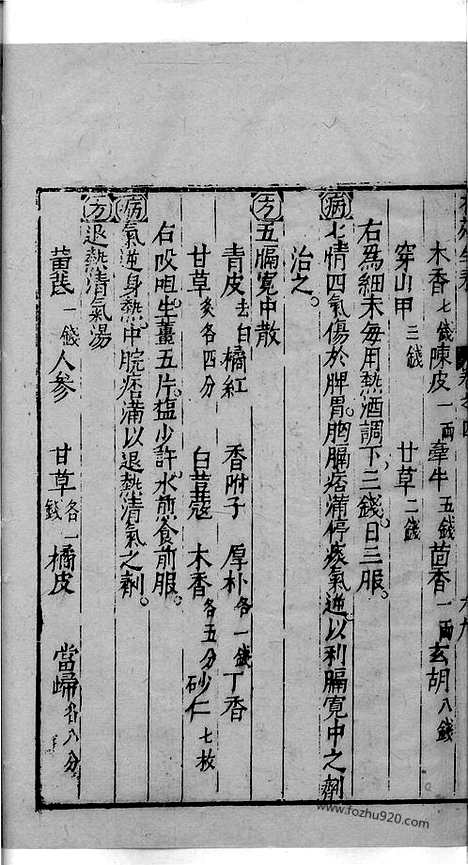 木香七錢陳皮一兩牽牛五錢茴香一兩玄胡八錢
穿山甲三錢 甘草二錢
右爲細末每用熱酒調下三錢。日三服。
病七情四氣傷於脾胃。胸膈痞滿停痰氣逆。以利膈寬中之劑
治之。
方五膈寬中散
青皮去白橘紅 香附子 厚朴各一錢丁香
甘草炙各四分 白荳蔻 木香各五分砂仁七枚
右㕮咀。生薑五片。塩少許。水煎。食前服。
病氣逆身熱。中脘痞滿以退熱清氣之劑。
方退熱清氣湯
黃芪一錢人參 甘草各一錢橘皮 當歸各八分
www.fozhu920.com